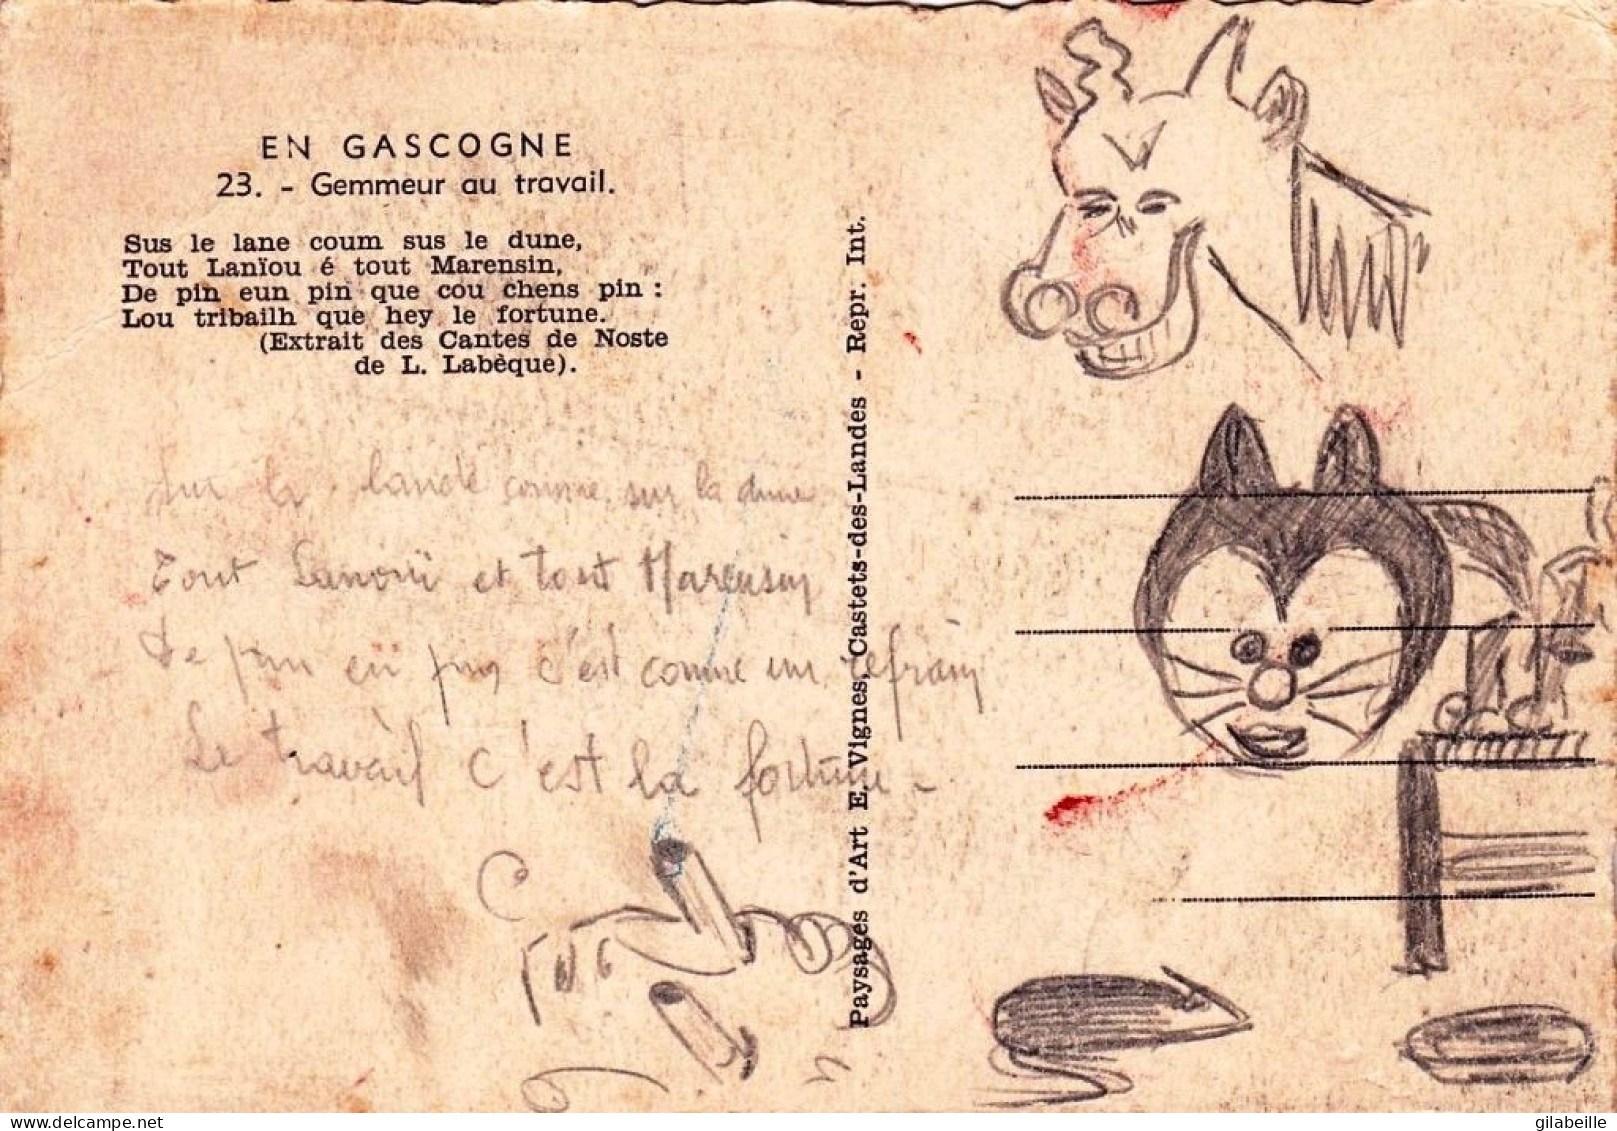 EN GASCOGNE
23. - Gemmeur au travail.
Sus le lane coum sus le dune,
Tout Lanïou é tout Marensin,
De pin eun pin que cou chens pin :
Lou tribailh que hey le fortune.
(Extrait des Cantes de Noste
de L. Labèque).
Sur la lande comme sur la dune
Tout Lanouï et tout Marensin
De pin en pin c'est comme un refrain
Le travail c'est la fortune -
Paysages d'Art E. Vignes, Castets-des-Landes - Repr. Int.
delcampe.net
gilabeille